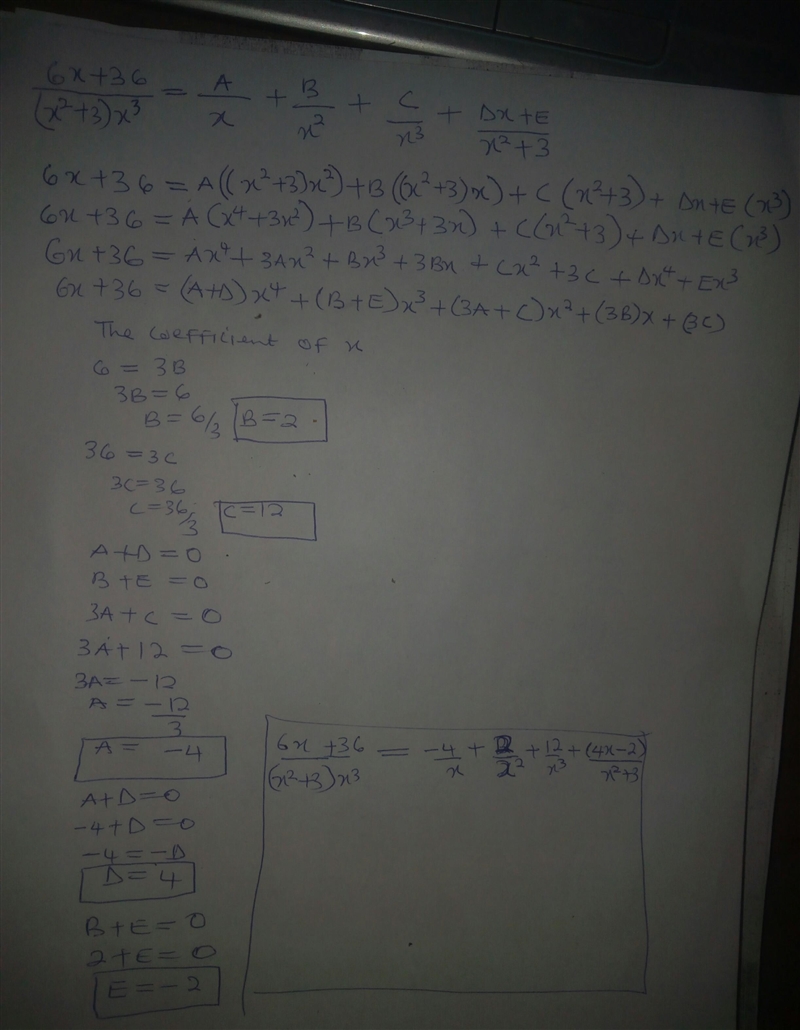 6x+36/(x²+3)x³ = A/x + B/x² + C/x³ + Dx+E/x²+3
6x+36 = A((x²+3)x²)+B((x²+3)x)+C(x²+3)+Dx+E(x³)
6x+36 = A(x⁴+3x²)+B(x³+3x)+C(x²+3)+Dx+E(x³)
6x+36 = Ax⁴+3Ax²+Bx³+3Bx+Cx²+3C+Dx⁴+Ex³
6x+36 = (A+D)x⁴+(B+E)x³+(3A+C)x²+(3B)x+(3C)
The coefficient of x
6 = 3B
3B=6
B=6/3 B=2
36=3C
3C=36
C=36/3 C=12
A+D=0
B+E=0
3A+C=0
3A+12=0
3A=-12
A=-12/3
A= -4
A+D=0
-4+D=0
-4=-D
D=4
B+E=0
2+E=0
E=-2
6x+36/(x²+3)x³ = -4/x + 2/x² + 12/x³ + (4x-2)/x²+3